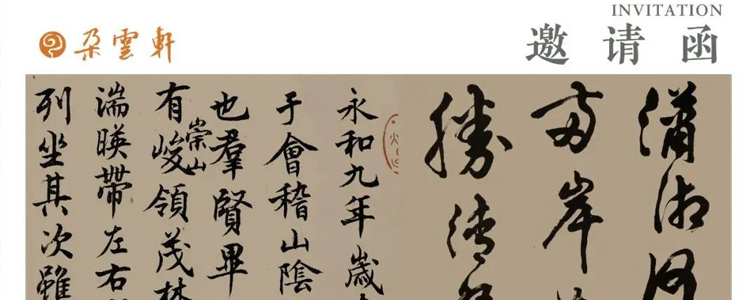 INVITATION
朵雲軒
邀请函
瀟湘
两岸
勝
永和九年歲
于會稽山陰
也羣賢畢
有崇山峻領茂林
湍暎帶左右
列坐其次雖